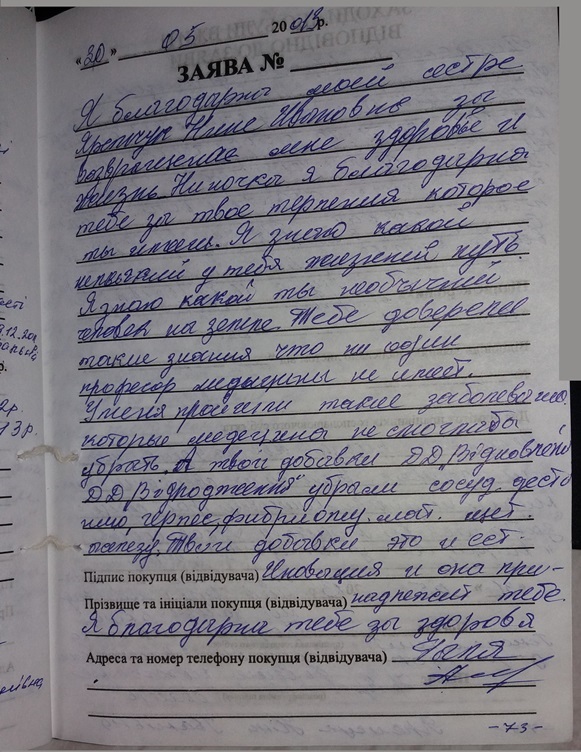 "30" 05 2013 р.
ЗАЯВА №
Я благодарна моей сестре
Нине Ивановне за
мне здоровье и
жизнь. Ниночка я благодарна
тебе за твое терпения которое
ты имеешь. Я знаю какой
у тебя жизненый путь.
Я знаю какой ты необычный
человек на земле. Тебе доверенее
такие знания что ни один
професор медицины не имеет.
У меня прошли такие заболевания
которые медецина не смогла бы
убрать. А твои добавки ДД "Відновлення
ДД "Відродження" убрали сосуд. дисто
нию, герпес, фибриому. мат. щет.
Твои добавки это и ест.
Підпис покупця (відвідувача) Иновация и она при-
Прізвище та ініціали покупця (відвідувача) надлежит тебе.
Я благодарна тебе за здоровя
Адреса та номер телефону покупця (відвідувача) Галя
-73-